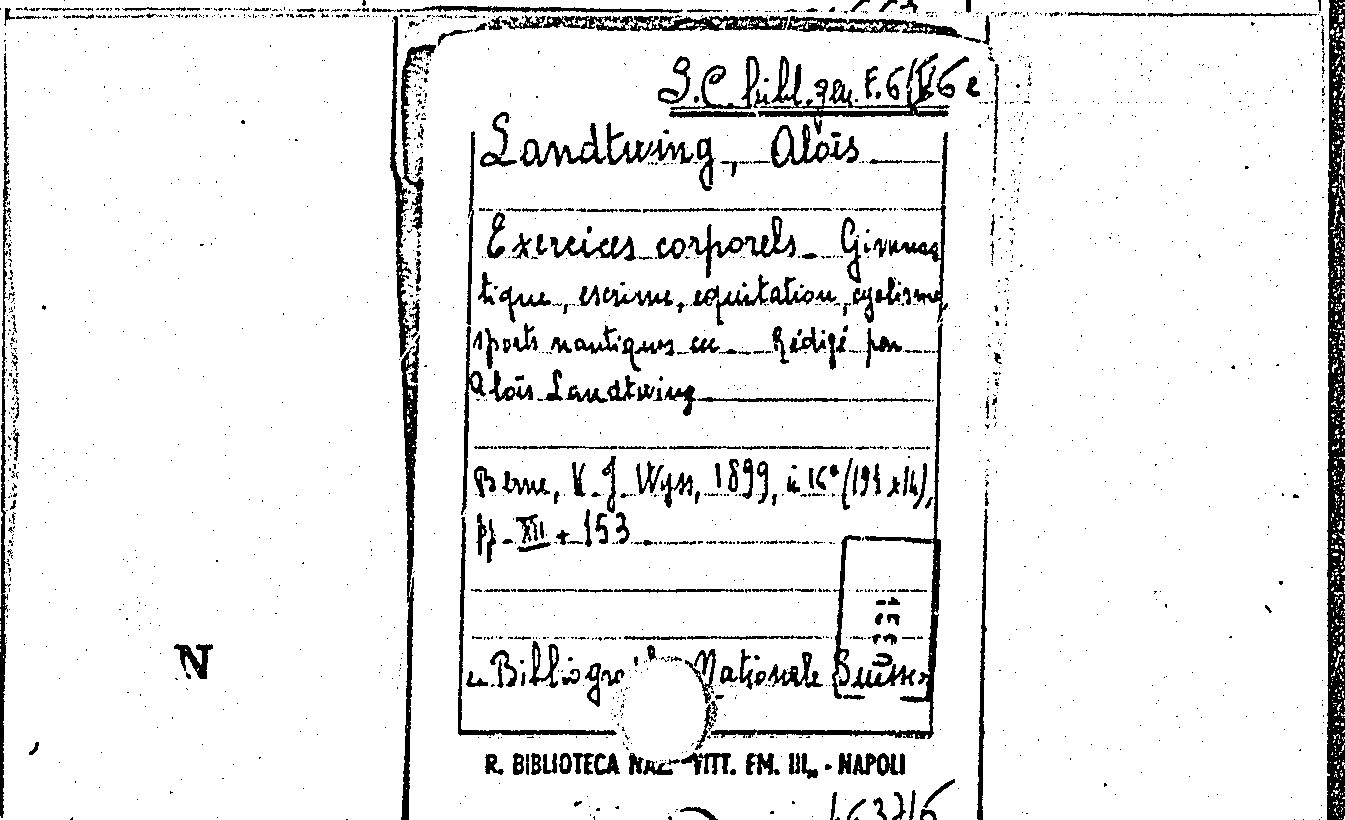 S.C. bibl. gen. F.6
Landtwing, Aloïs
Exercices corporels - Gimnas
tique, escrime, equitation, cyclisme,
sports nautiques ecc - Rédigé par
Aloïs Landtwing
Berne, K. J. Wyss, 1899, in 16° (19½ x 14),
pp. XII + 153
in Bibliogra Nationale Suisse
R. BIBLIOTECA NAZ. VITT. EM. III„ - NAPOLI
N